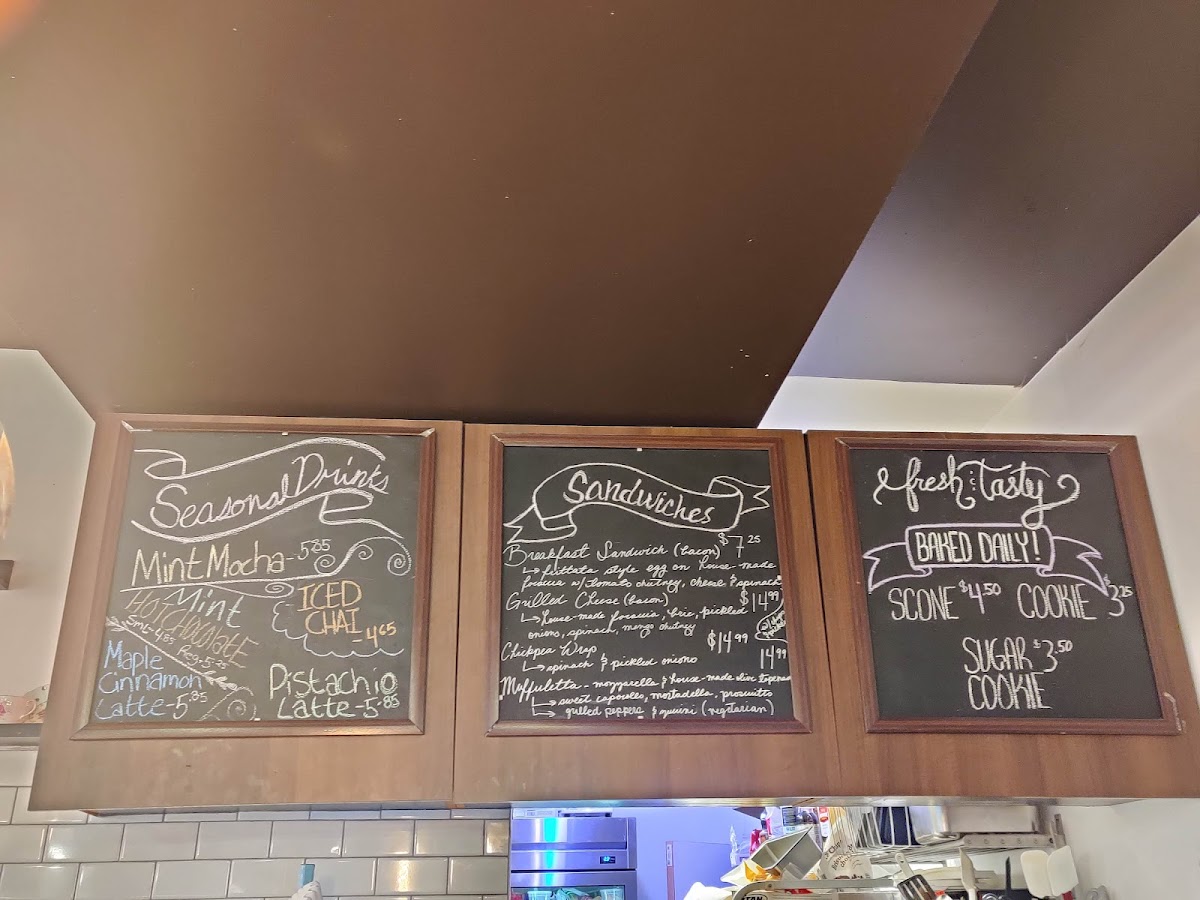 Seasonal Drinks
Mint Mocha - 5.85
Mint
HOT CHOCOLATE
Sml - 4.85 Reg - 5.25
ICED
CHAI
- 4.65
Maple
Cinnamon
Latte - 5.85
Pistachio
Latte - 5.85
Sandwiches
Breakfast Sandwich (bacon) $7.25
↳ frittata style egg on house-made
focaccia w/ tomato chutney, cheese & spinach
Grilled Cheese (bacon) $14.99
↳ house-made focaccia, brie, pickled
onions, spinach, mango chutney
Chickpea Wrap $14.99
↳ spinach & pickled onions
14.99
Muffuletta - mozzarella & house-made olive tapenade
↳ sweet capocollo, mortadella, prosciutto
↳ grilled peppers & zucchini (vegetarian)
fresh & Tasty
BAKED DAILY!
SCONE $4.50 COOKIE $3.25
SUGAR $3.50
COOKIE